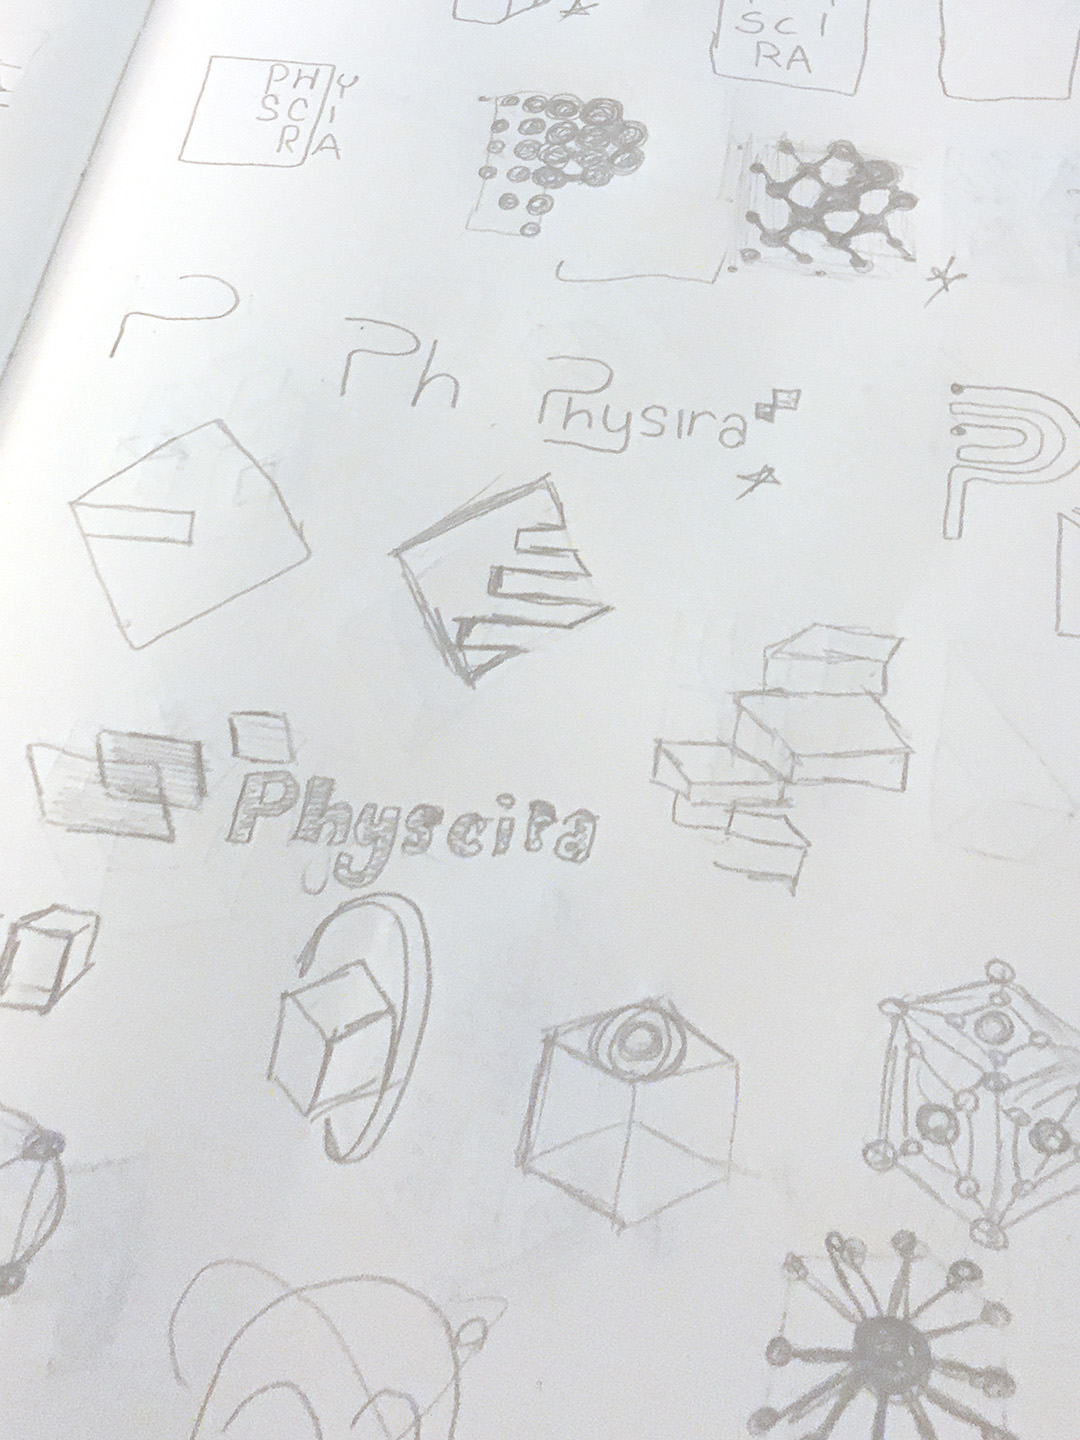 SCI
RA
PHY
SCI
RA
P
Ph
Physira
P
Physcira